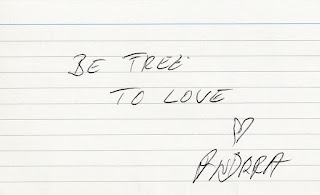 BE FREE
TO LOVE
ANDRRA